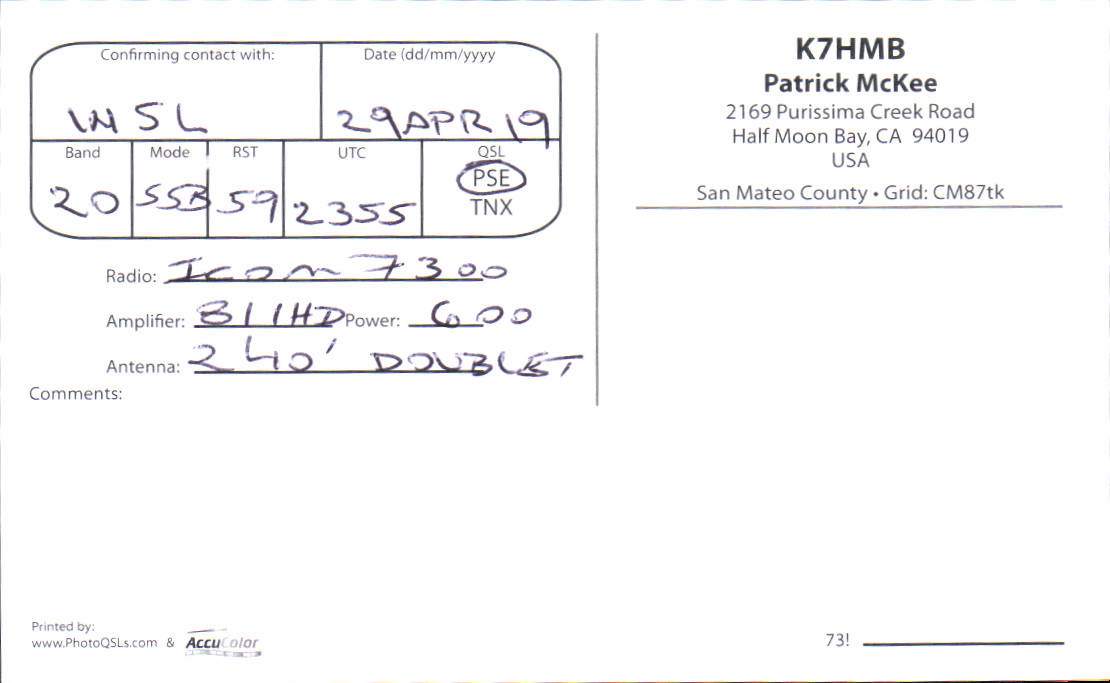 Confirming contact with:
Date (dd/mm/yyyy
W5L
29APR19
Band
Mode
RST
UTC
QSL
20
SSB
59
2355
PSE
TNX
Radio: Icom 7300
Amplifier: 811HD Power: 600
Antenna: 240' DOUBLET
Comments:
K7HMB
Patrick McKee
2169 Purissima Creek Road
Half Moon Bay, CA 94019
USA
San Mateo County • Grid: CM87tk
Printed by:
www.PhotoQSLs.com & AccuColor
73!